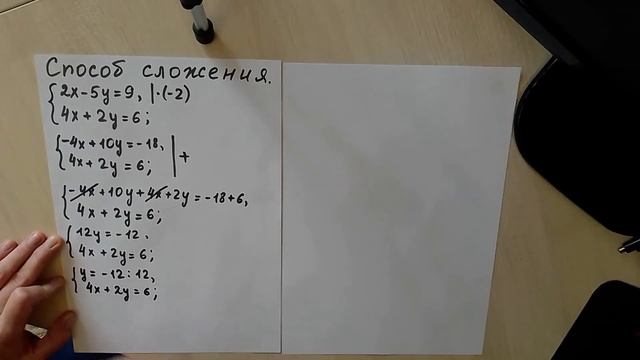 Способ сложения.
2x-5y=9, |·(-2)
4x+2y=6;
-4x+10y=-18, | +
4x+2y=6;
-4x+10y+4x+2y=-18+6,
4x+2y=6;
12y=-12.
4x+2y=6;
y=-12:12,
4x+2y=6;